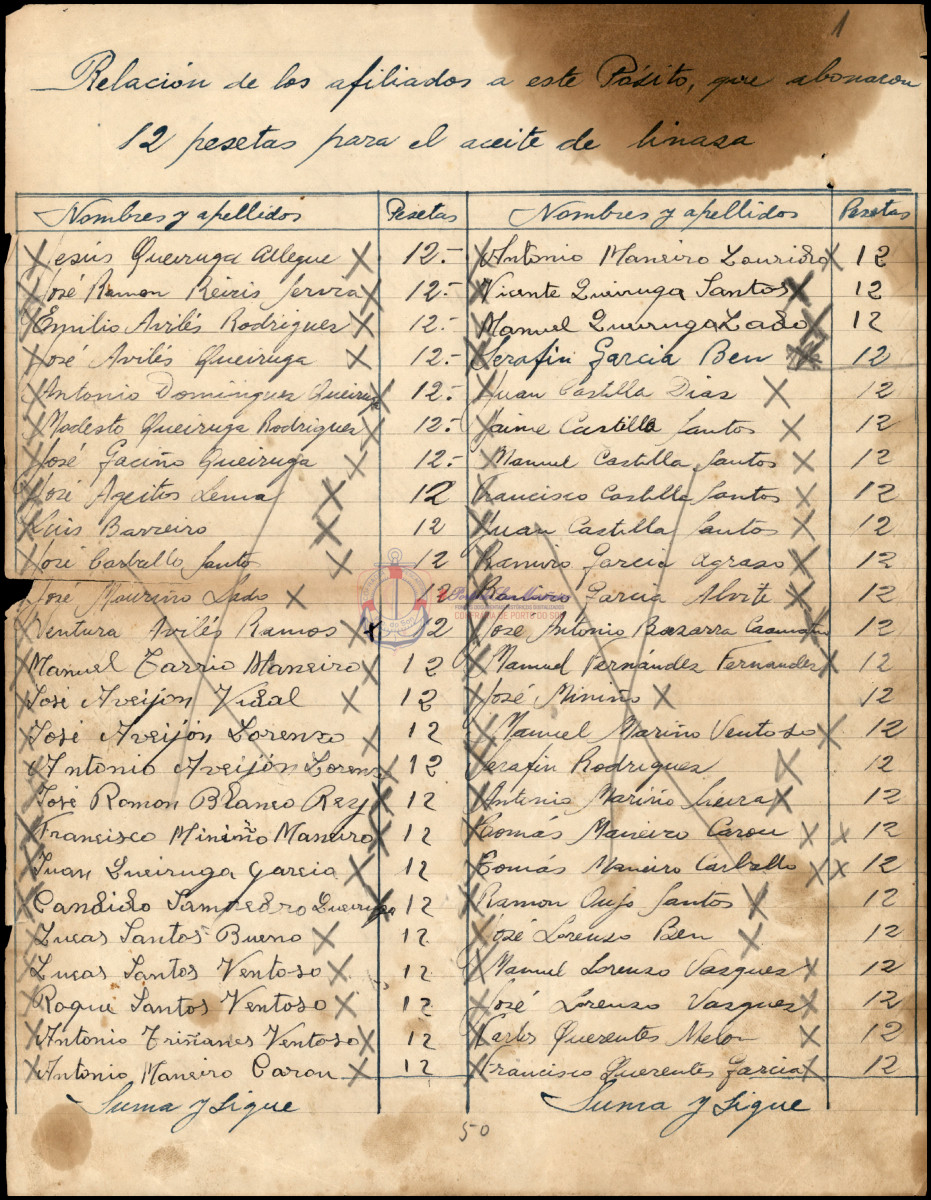 1
Relación de los afiliados a este Pósito, que abonaron
12 pesetas para el aceite de linaza
Nombres y apellidos Pesetas
Jesús Queiruga Allegue 12.-
José Ramon Reiris Servia 12.-
Emilio Avilés Rodrigues 12.-
José Avilés Queiruga 12.-
Antonio Domingues Queiruga 12.-
Modesto Queiruga Rodrigues 12.-
José Gaciño Queiruga 12.-
José Ageitos Lema 12
Luis Barreiro 12
José Carballo Santos 12
José Mouriño Lado 12
Ventura Avilés Ramos 12
Manuel Tarrio Maneiro 12
José Aveijón Vidal 12
José Aveijón Lorenzo 12
Antonio Aveijón Lorenzo 12
José Ramon Blanco Rey 12
Francisco Miniño Maneiro 12
Juan Queiruga Garcia 12
Candido Sampedro Queiruga 12
Lucas Santos Bueno 12
Lucas Santos Ventoso 12
Roque Santos Ventoso 12
Antonio Triñanes Ventoso 12
Antonio Maneiro Carou 12
Suma y Sigue
Nombres y apellidos Pesetas
Antonio Maneiro Lourido 12
Vicente Queiruga Santos 12
Manuel Queiruga Lado 12
Serafin Garcia Ben 12
Juan Castilla Dias 12
Jaime Castilla Santos 12
Manuel Castilla Santos 12
Francisco Castilla Santos 12
Juan Castilla Santos 12
Ramiro Garcia Agraso 12
Barbaro Garcia Alvite 12
José Antonio Bazarra Caamaño 12
Manuel Fernández Fernandes 12
José Miniño 12
Manuel Mariño Ventoso 12
Serafin Rodrigues 12
Antonio Mariño Sieira 12
Tomás Maneiro Carou 12
Tomás Maneiro Carballo 12
Ramon Oujo Santos 12
José Lorenzo Ben 12
Manuel Lorenzo Vasques 12
José Lorenzo Vasques 12
Carlos Querentes Melon 12
Francisco Querentes Garcia 12
Suma y Sigue
50
COFRADÍA DE PORTO DO SON